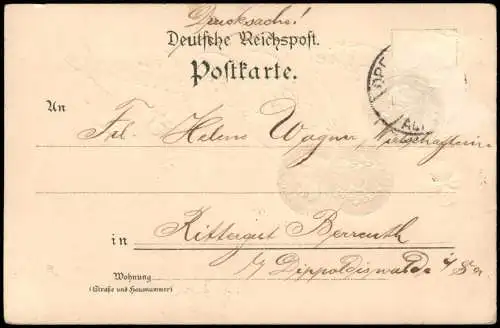 Drucksache!
Deutsche Reichspost.
Postkarte.
An
Frl. Helene Wagner, Wirtschafterin
in Rittergut Berreuth
b/ Dippoldiswalde i/Sa
Wohnung
(Straße und Hausnummer)